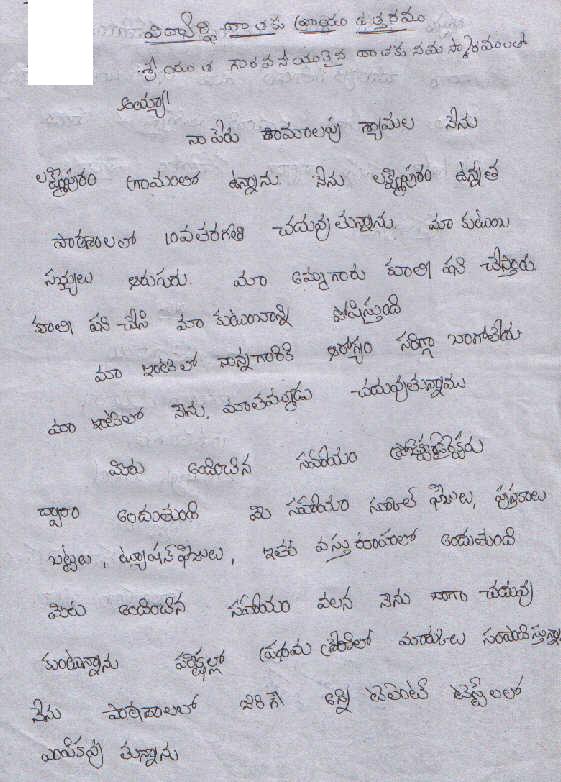 విద్యార్థిని దాతకు వ్రాయు ఉత్తరము
శ్రీయుత గౌరవనీయులైన దాతకు నమస్కారములతో
అయ్యా!
నా పేరు శ్యామల నేను
లక్ష్మీపురం గ్రామంలో ఉన్నాను. నేను లక్ష్మీపురం ఉన్నత
పాఠశాలలో 10వతరగతి చదువుతున్నాను. మా కుటుంబ
సభ్యులు ఆరుగురు. మా అమ్మగారు కూలి పని చేస్తారు.
కూలి పని చేసి మా కుటుంబాన్ని పోషిస్తుంది
మా ఇంటిలో నాన్నగారికి ఆరోగ్యం సరిగ్గా బాగోలేదు
మా ఇంటిలో నేను, మాతమ్ముడు చదువుతున్నాము
మీరు అందించిన సహాయం
ద్వారా అందుతుంది మీ సహాయం స్కూల్ ఫీజులు, పుస్తకాలు
బట్టలు, ట్యూషన్ ఫీజులు, ఇతర వస్తు రూపంలో అందుతుంది
మీరు అందించిన సహాయం వలన నేను బాగా చదువు
కుంటున్నాను ప్రథమ శ్రేణిలో మార్కులు సంపాదిస్తున్నా
నేను పాఠశాలలో జరిగే అన్ని టాలెంట్ టెస్ట్‌లలో
తున్నాను